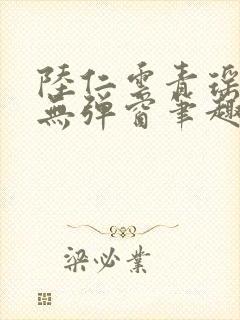 陸仁雲青瑤
無彈窗筆趣
梁必業